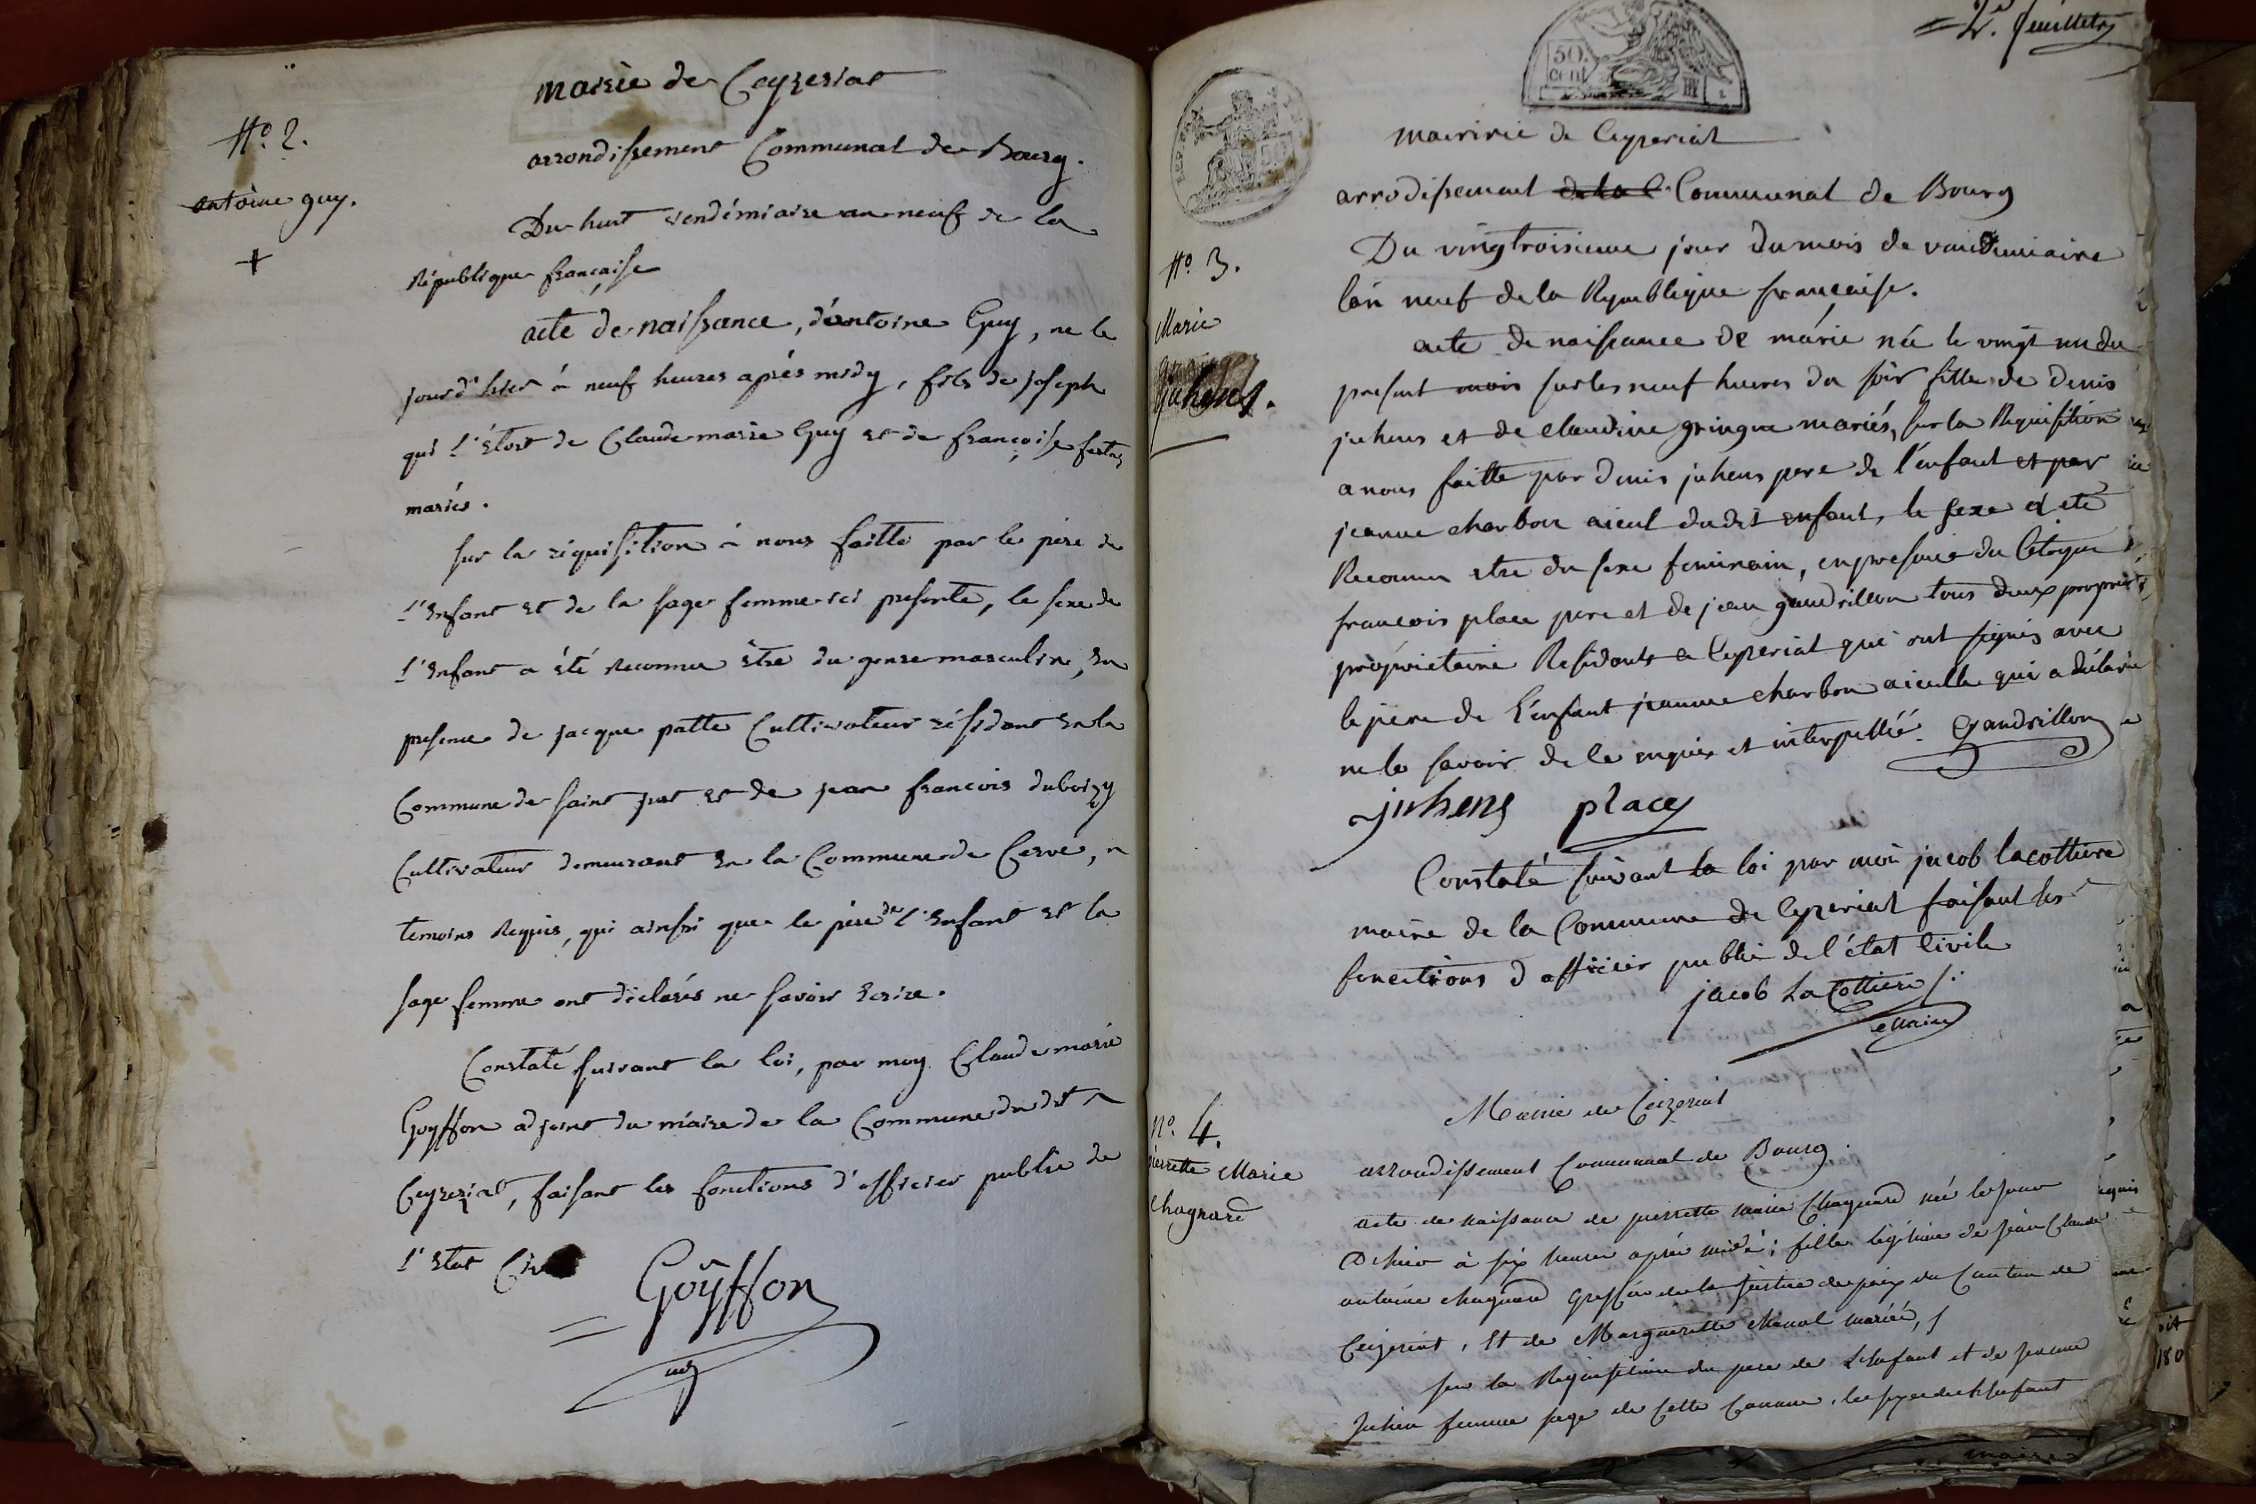 Mairie de Ceyzeriat
N.º 2.
arrondissement Communal de Bourg.
antoine guy.
+
Du huit vendémiaire an neuf de la
République française
acte de naissance, d'antoine Guy, né le
jour d'hier à neuf heures après midy, fils de joseph
guy l'Etort de Claude marie Guy et de françoise
mariés.
sur la réquisition à nous faitte par le père de
l'Enfant et de la sage femme ici présente, le sexe de
l'Enfant a été reconnu être du genre masculin, En
présence de jacque patte Cultivateur résidant En la
Commune de saint just et de jean françois duboizy
Cultivateur demeurant En la Commune de
temoins Requis, qui ainssi que le père de l'Enfant et la
sage femme ont déclarés ne savoir Ecrire.
Constaté suivant la loi, par moy Claude marie
Goyffon adjoint du maire de la Commune du dit
Ceyzeriat, faisant les fonctions d'officier public de
l'Etat
Goÿffon
adj
50. cent
2.e feuillet
REP.
mairirie de Ceyzeriat
arrodissement de la C Communal de Bourg
N.º 3.
Du vingtroisieme jour du mois de vendemiaire
l'an neuf de la Republique française.
Marie
juhens.
acte de naissance de marie née le vingt un du
present mois sur les neuf heures du soir fille de Denis
juhens et de claudine gringue mariés, sur la Requisition
a nous faitte par Denis juhens pere de l'enfant et par
jeanne charbon aieul dudit enfant, le sexe a eté
Reconnu etre du sexe feminain, en presence du Citoyen
françois place pere et de jean gandrillon tous deux
propriétaire Residents a Ceyzeriat qui ont signés avec
le pere de l'enfant jeanne charbon aieulle qui a déclarée
ne le savoir de ce enquis et interpellée. Gandrillon
juhens place
Constaté suivant la loi par moi jacob lacottiere
maire de la Commune de Ceyzeriat faisant les
fonctions d officier public de l'état Civile
jacob LaCottiere
Maire
Mairie de Ceizeriat
N.º 4.
arrondissement Communal de Bourg.
pierrette Marie
Chagnard
acte de naissance de pierrette marie Chagnard née le jour
D'hier à six heures après midi; fille légitime de jean Claude
antoine chagnard Greffier de la justice de paix du Canton de
Ceizeriat, Et de Marguerite Chanal mariée,
sur la Requisition du pere de L'Enfant et de jeanne
Juhen femme sage de Cette Comune, le sexe de L'Enfant
maire